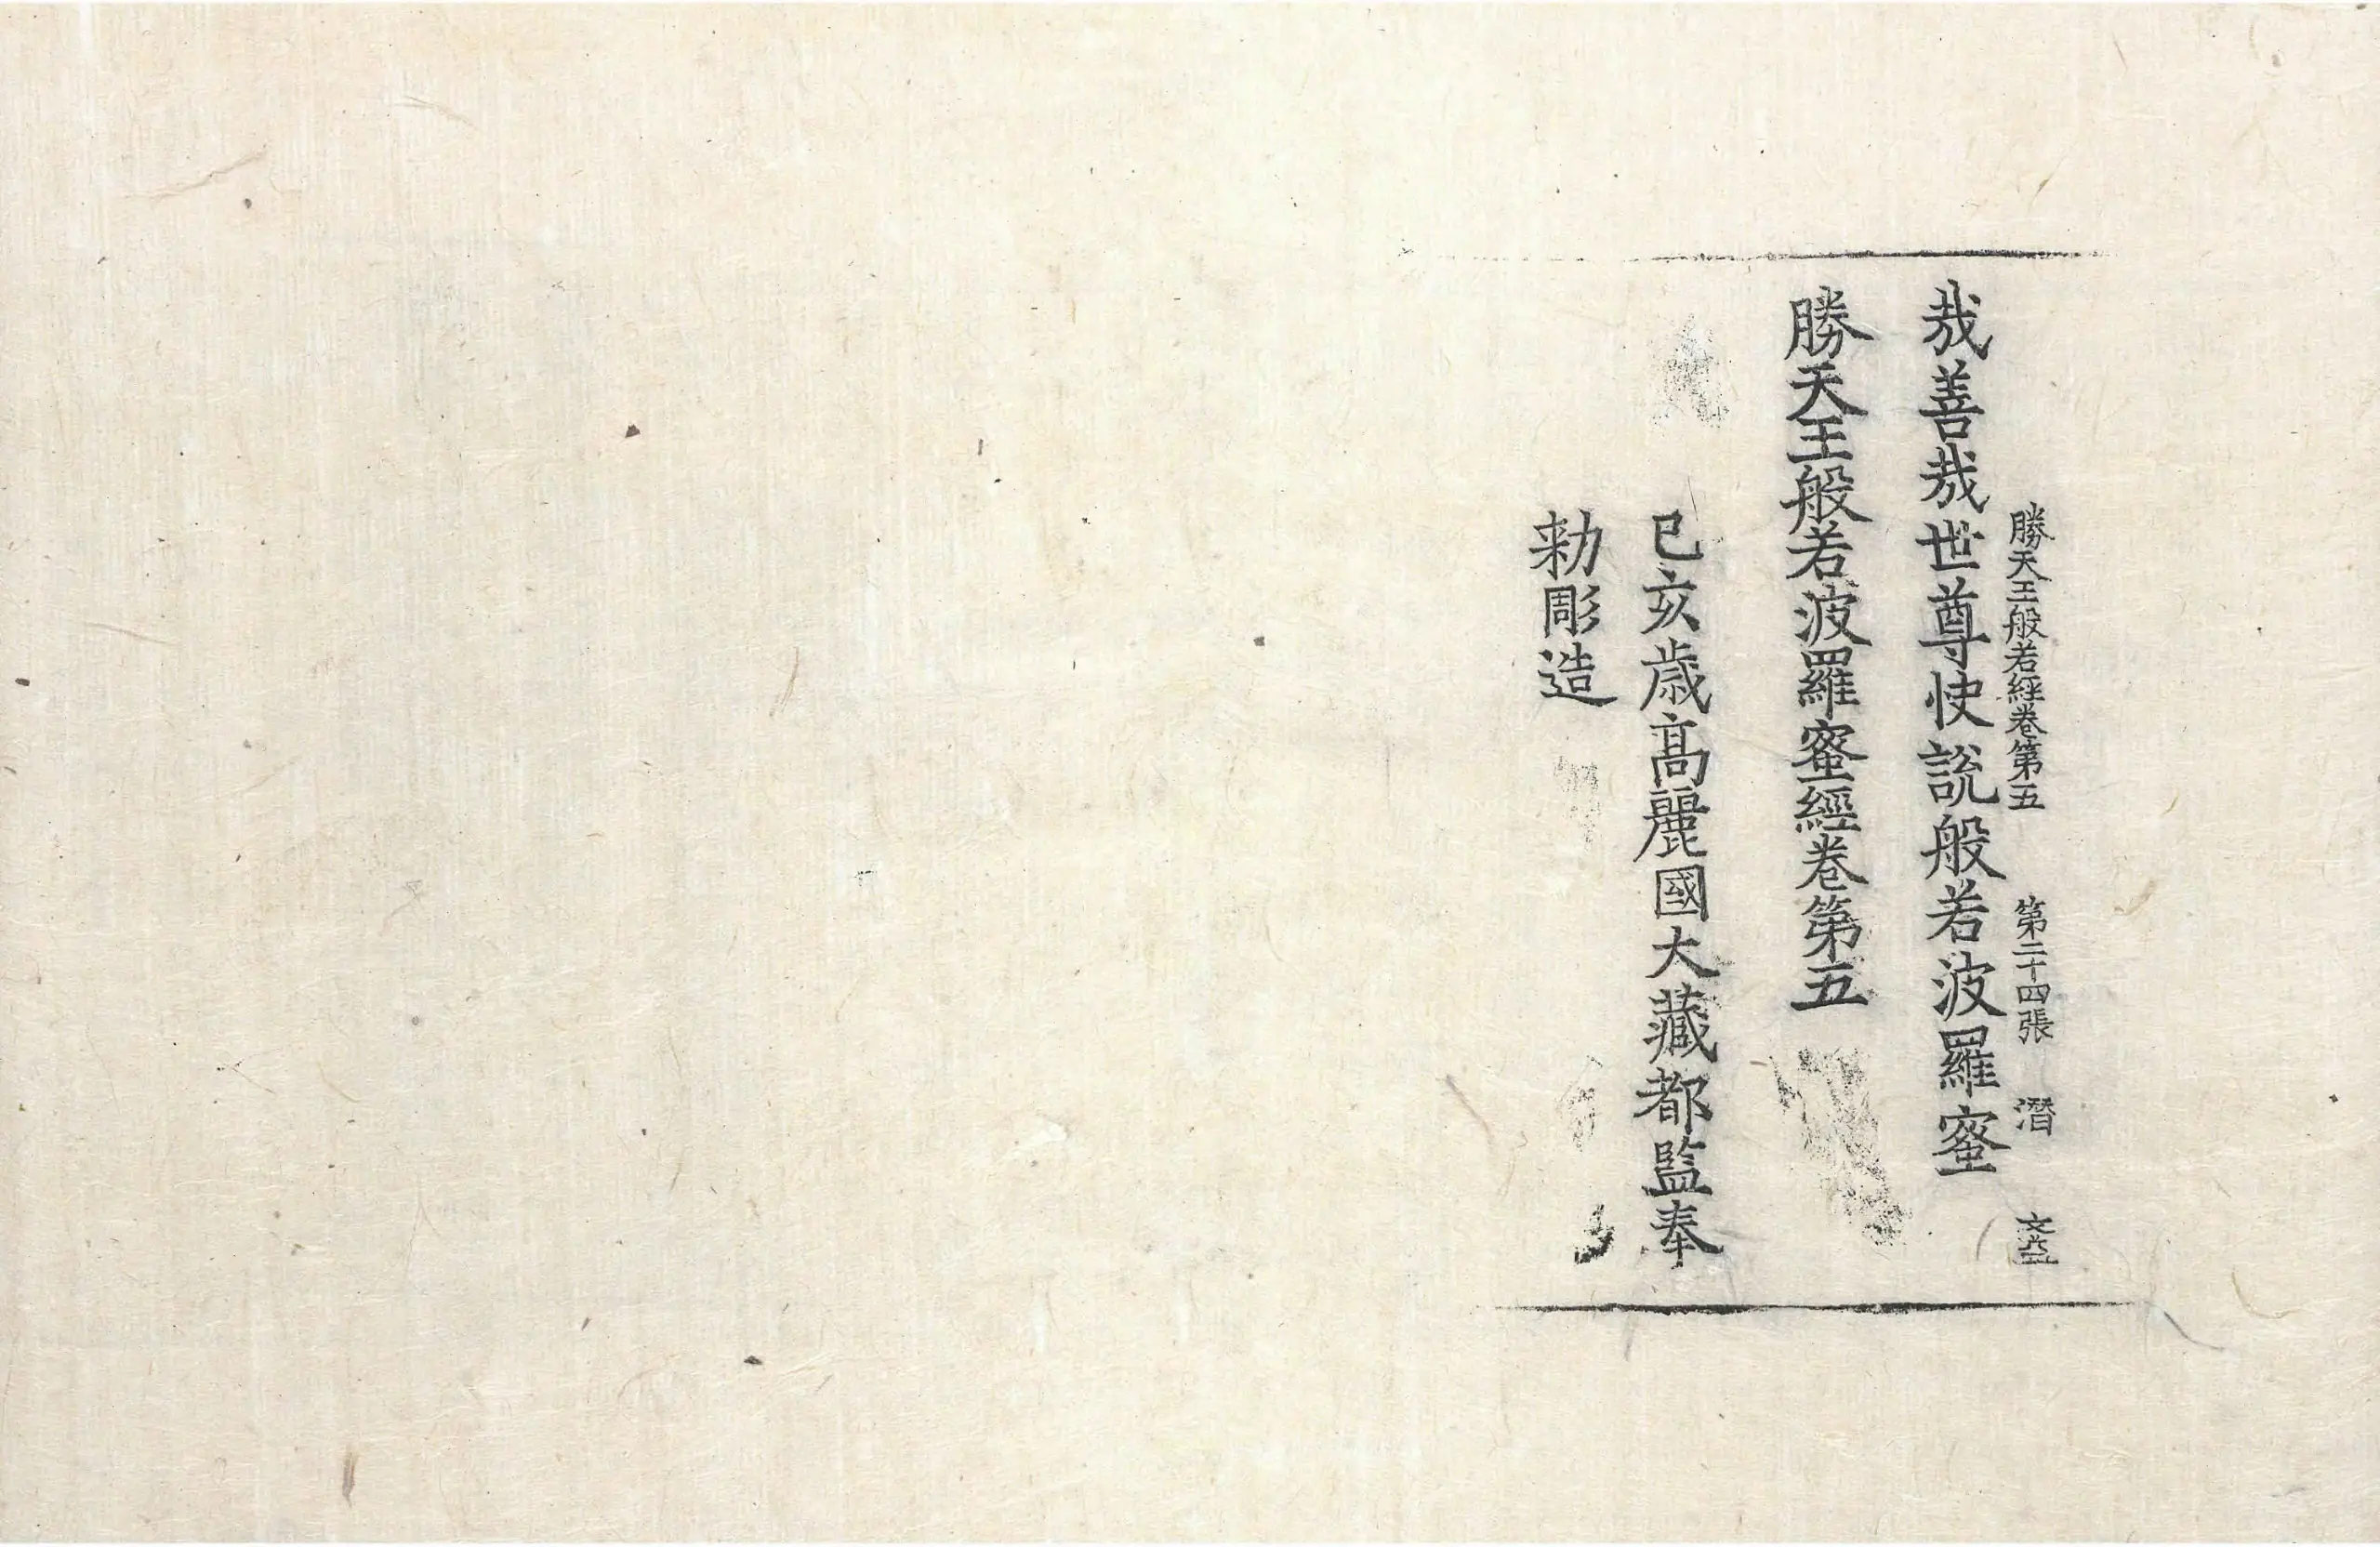 勝天王般若経卷第五 第二十四張 潛
㢤善㢤世尊快說般若波羅蜜
勝天王般若波羅蜜經卷第五
已亥歲高麗國大藏都監奉
勑彫造